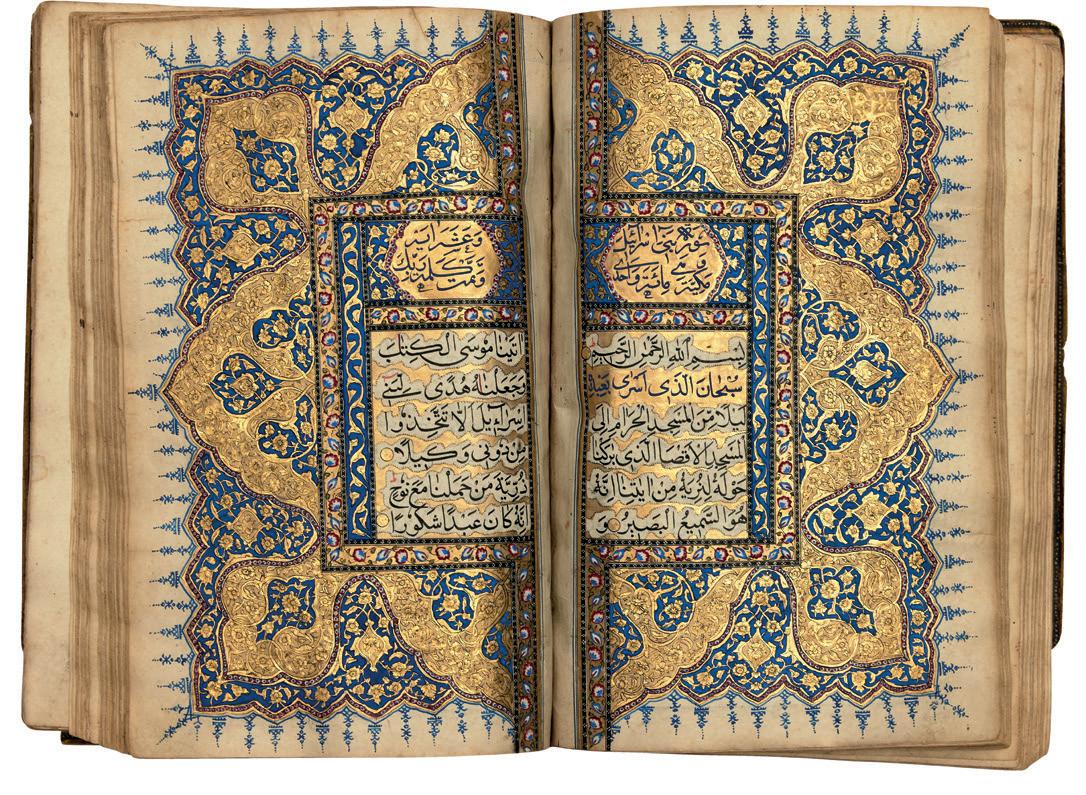 سورة بنى اسرائيل
وهى
مكية مائة واحد
بِسْمِ اللهِ الرَّحْمٰنِ الرَّحِيمِ
سُبْحَانَ الَّذِى اَسْرٰى بِعَبْدِهِ
لَيْلًا مِنَ الْمَسْجِدِ الْحَرَامِ اِلَى
الْمَسْجِدِ الْاَقْصَا الَّذِى بٰرَكْنَا
حَوْلَهُ لِنُرِيَهُ مِنْ اٰيٰتِنَا اِنَّهُ
هُوَ السَّمِيعُ الْبَصِيرُ وَ
وعشر ايه
وتمت كلمت
اٰتَيْنَا مُوسَى الْكِتٰبَ
وَجَعَلْنٰهُ هُدًى لِبَنِى
اِسْرَائِلَ اَلَّا تَتَّخِذُوا
مِنْ دُونِى وَكِيلًا
ذُرِّيَّةَ مَنْ حَمَلْنَا مَعَ نُوحٍ
اِنَّهُ كَانَ عَبْدًا شَكُورًا